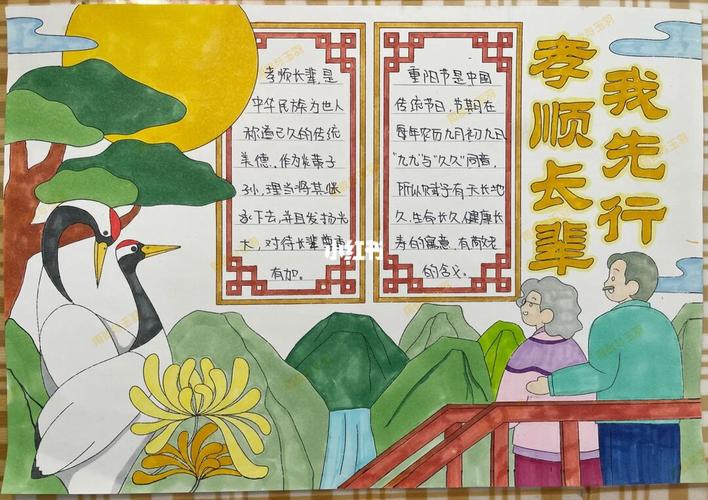 孝顺长辈
我先行
孝顺长辈,是
中华民族为世人
称道已久的传统
美德,作为炎黄子
孙,理当将其继
承下去,并且发扬光
大,对待长辈尊重
有加。
重阳节是中国
传统节日,节期在
每年农历九月初九日
"九九"与"久久"同音,
所以赋予有天长地
久,生命长久,健康长
寿的寓意,有敬老
的含义。
小红书